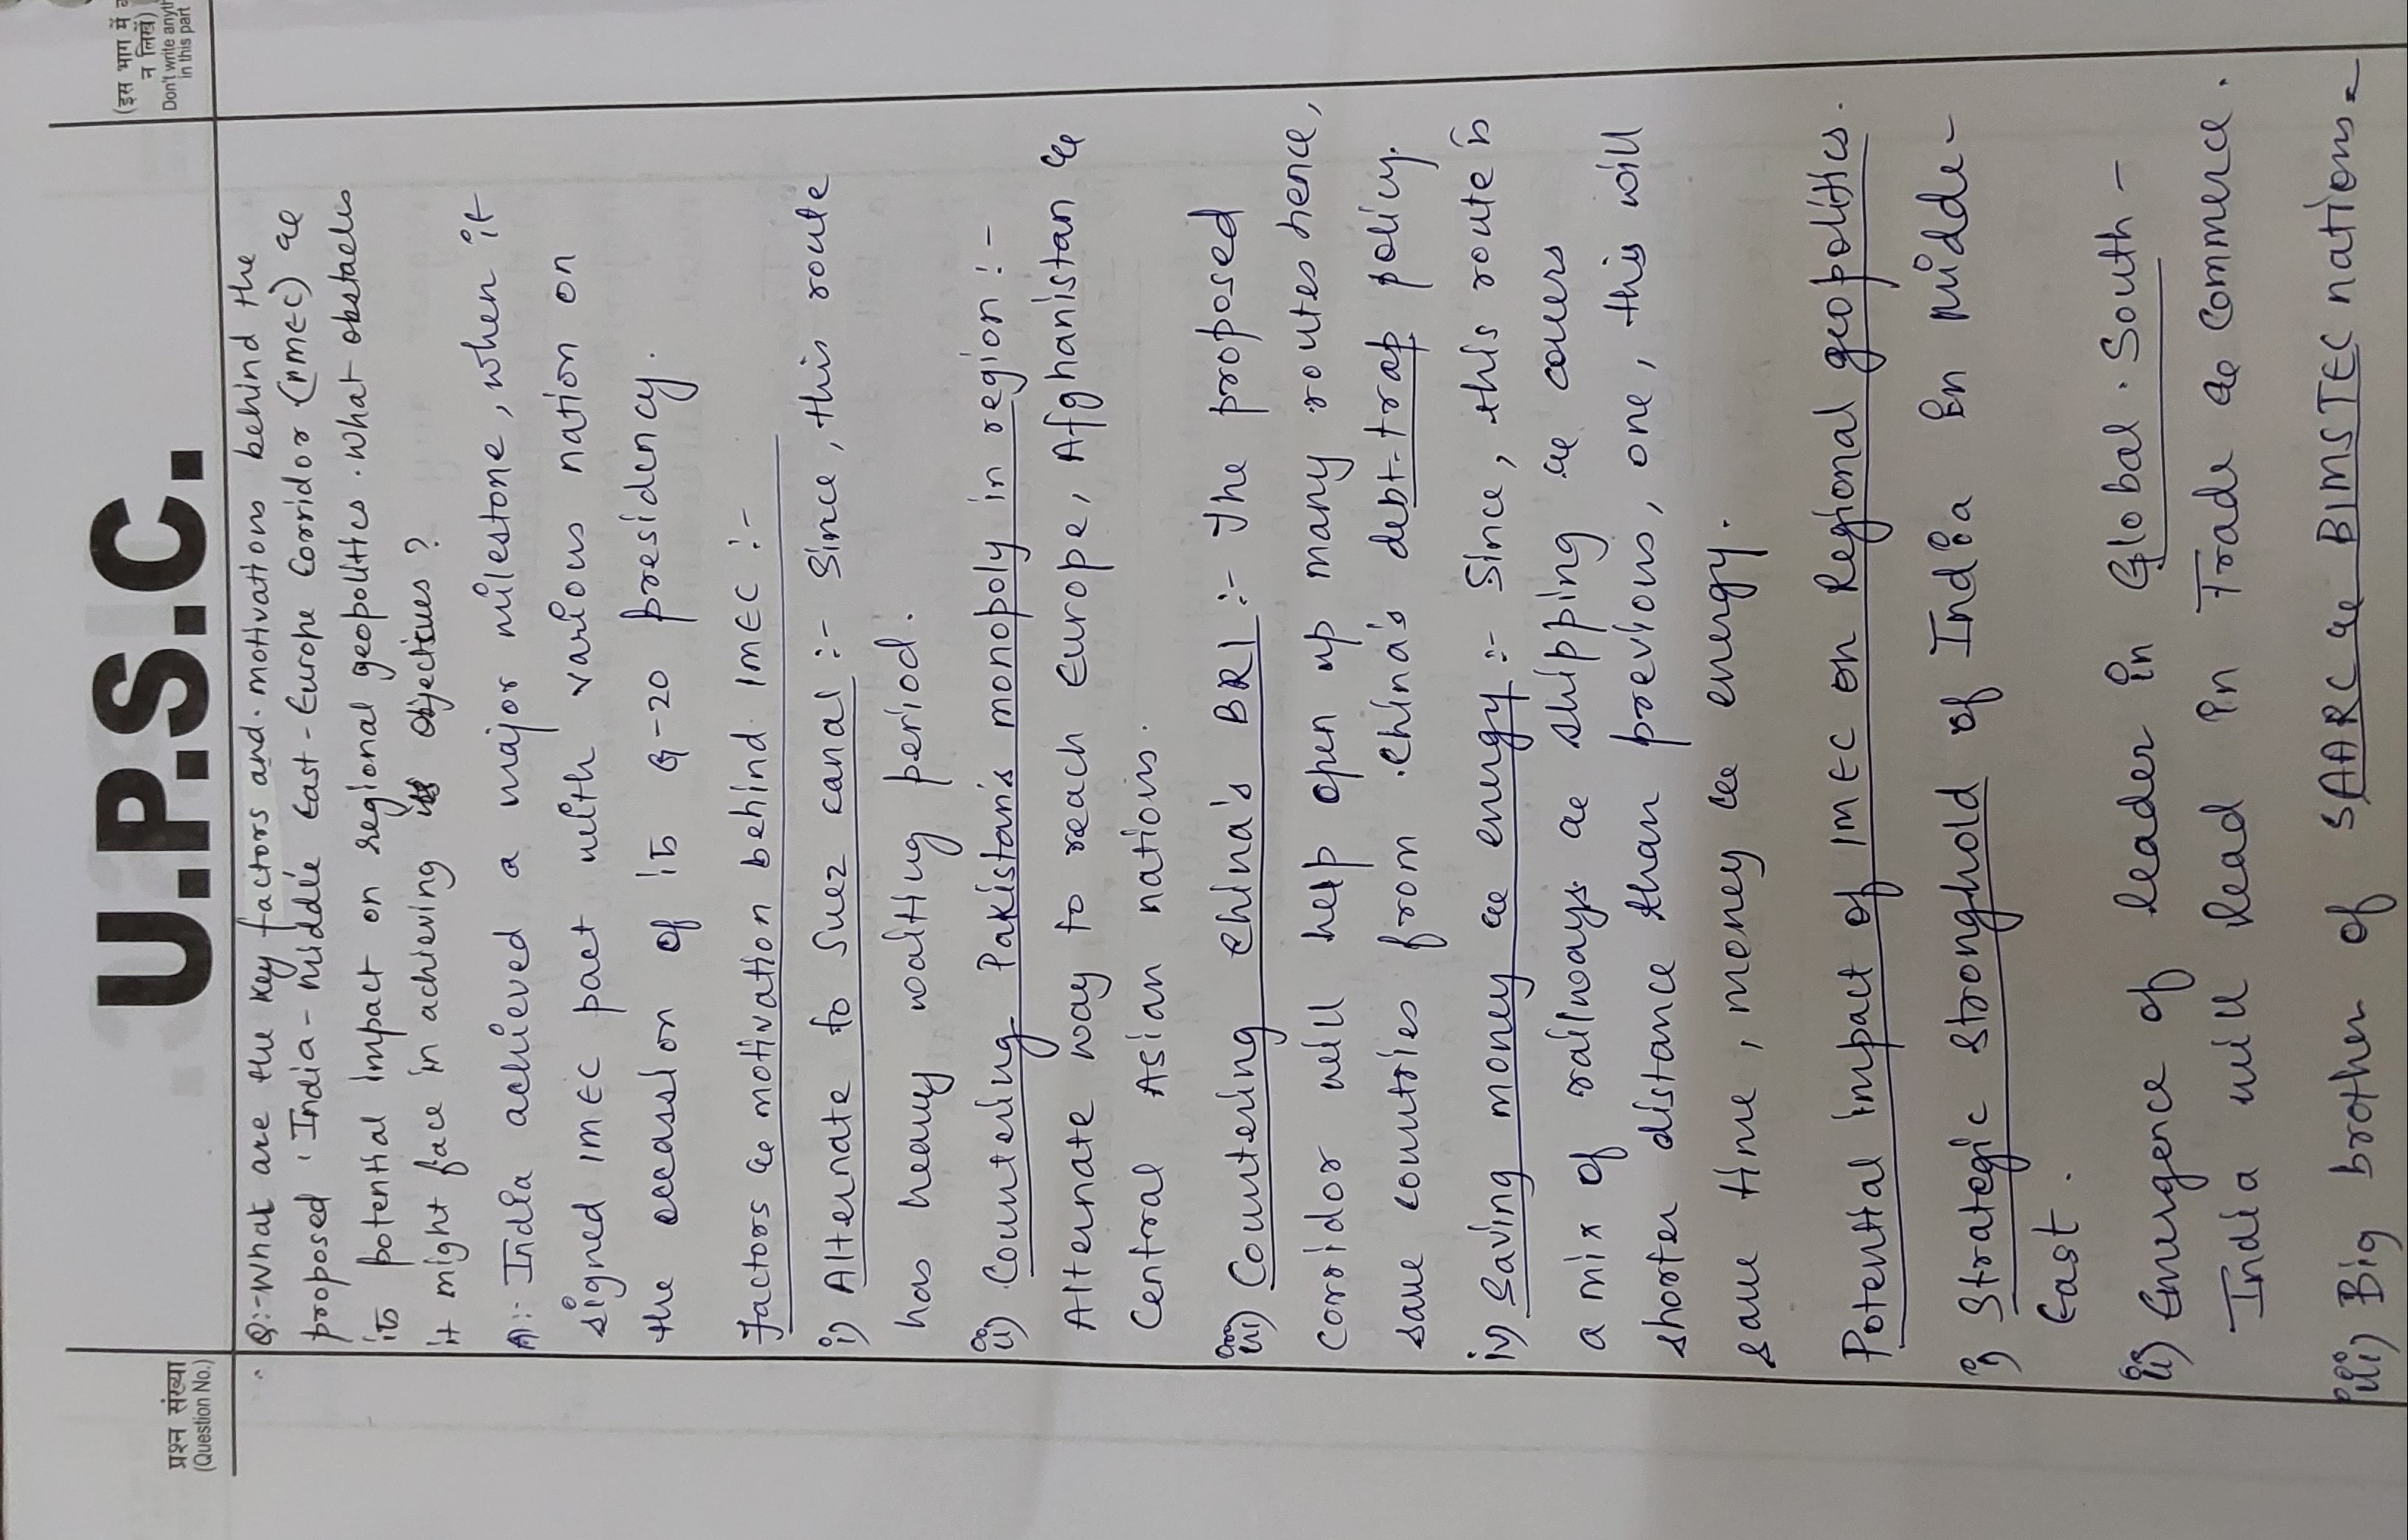 U.P.S.C.
प्रश्न संख्या
(Question No.)
(इस भाग में
न लिखें)
Don't write anyth
in this part
Q:-What are the key factors and motivations behind the
proposed India - Middle East - Europe Corridor (IMEC) &
its potential impact on regional geopolitics. What obstacles
it might face in achieving its objectives?
A:- India achieved a major milestone, when it
signed IMEC pact with various nation on
the occassion of its G-20 presidency.
Factors & motivation behind IMEC :-
i) Alternate to Suez canal :- Since, this route
has heavy waiting period.
ii) Countering Pakistan's monopoly in region :-
Alternate way to reach Europe, Afghanistan &
Central Asian nations.
iii) Countering China's BRI :- The proposed
corridor will help open up many routes hence,
save countries from China's debt-trap policy.
iv) Saving money & energy :- Since, this route is
a mix of railways & shipping & covers
shorter distance than previous, one, this will
save time, money & energy.
Potential impact of IMEC on Regional geopolitics.
i) Strategic stronghold of India in Midde-
East.
ii) Emergence of leader in Global South -
India will lead in Trade & Commerce.
iii) Big brother of SAARC & BIMSTEC nations.